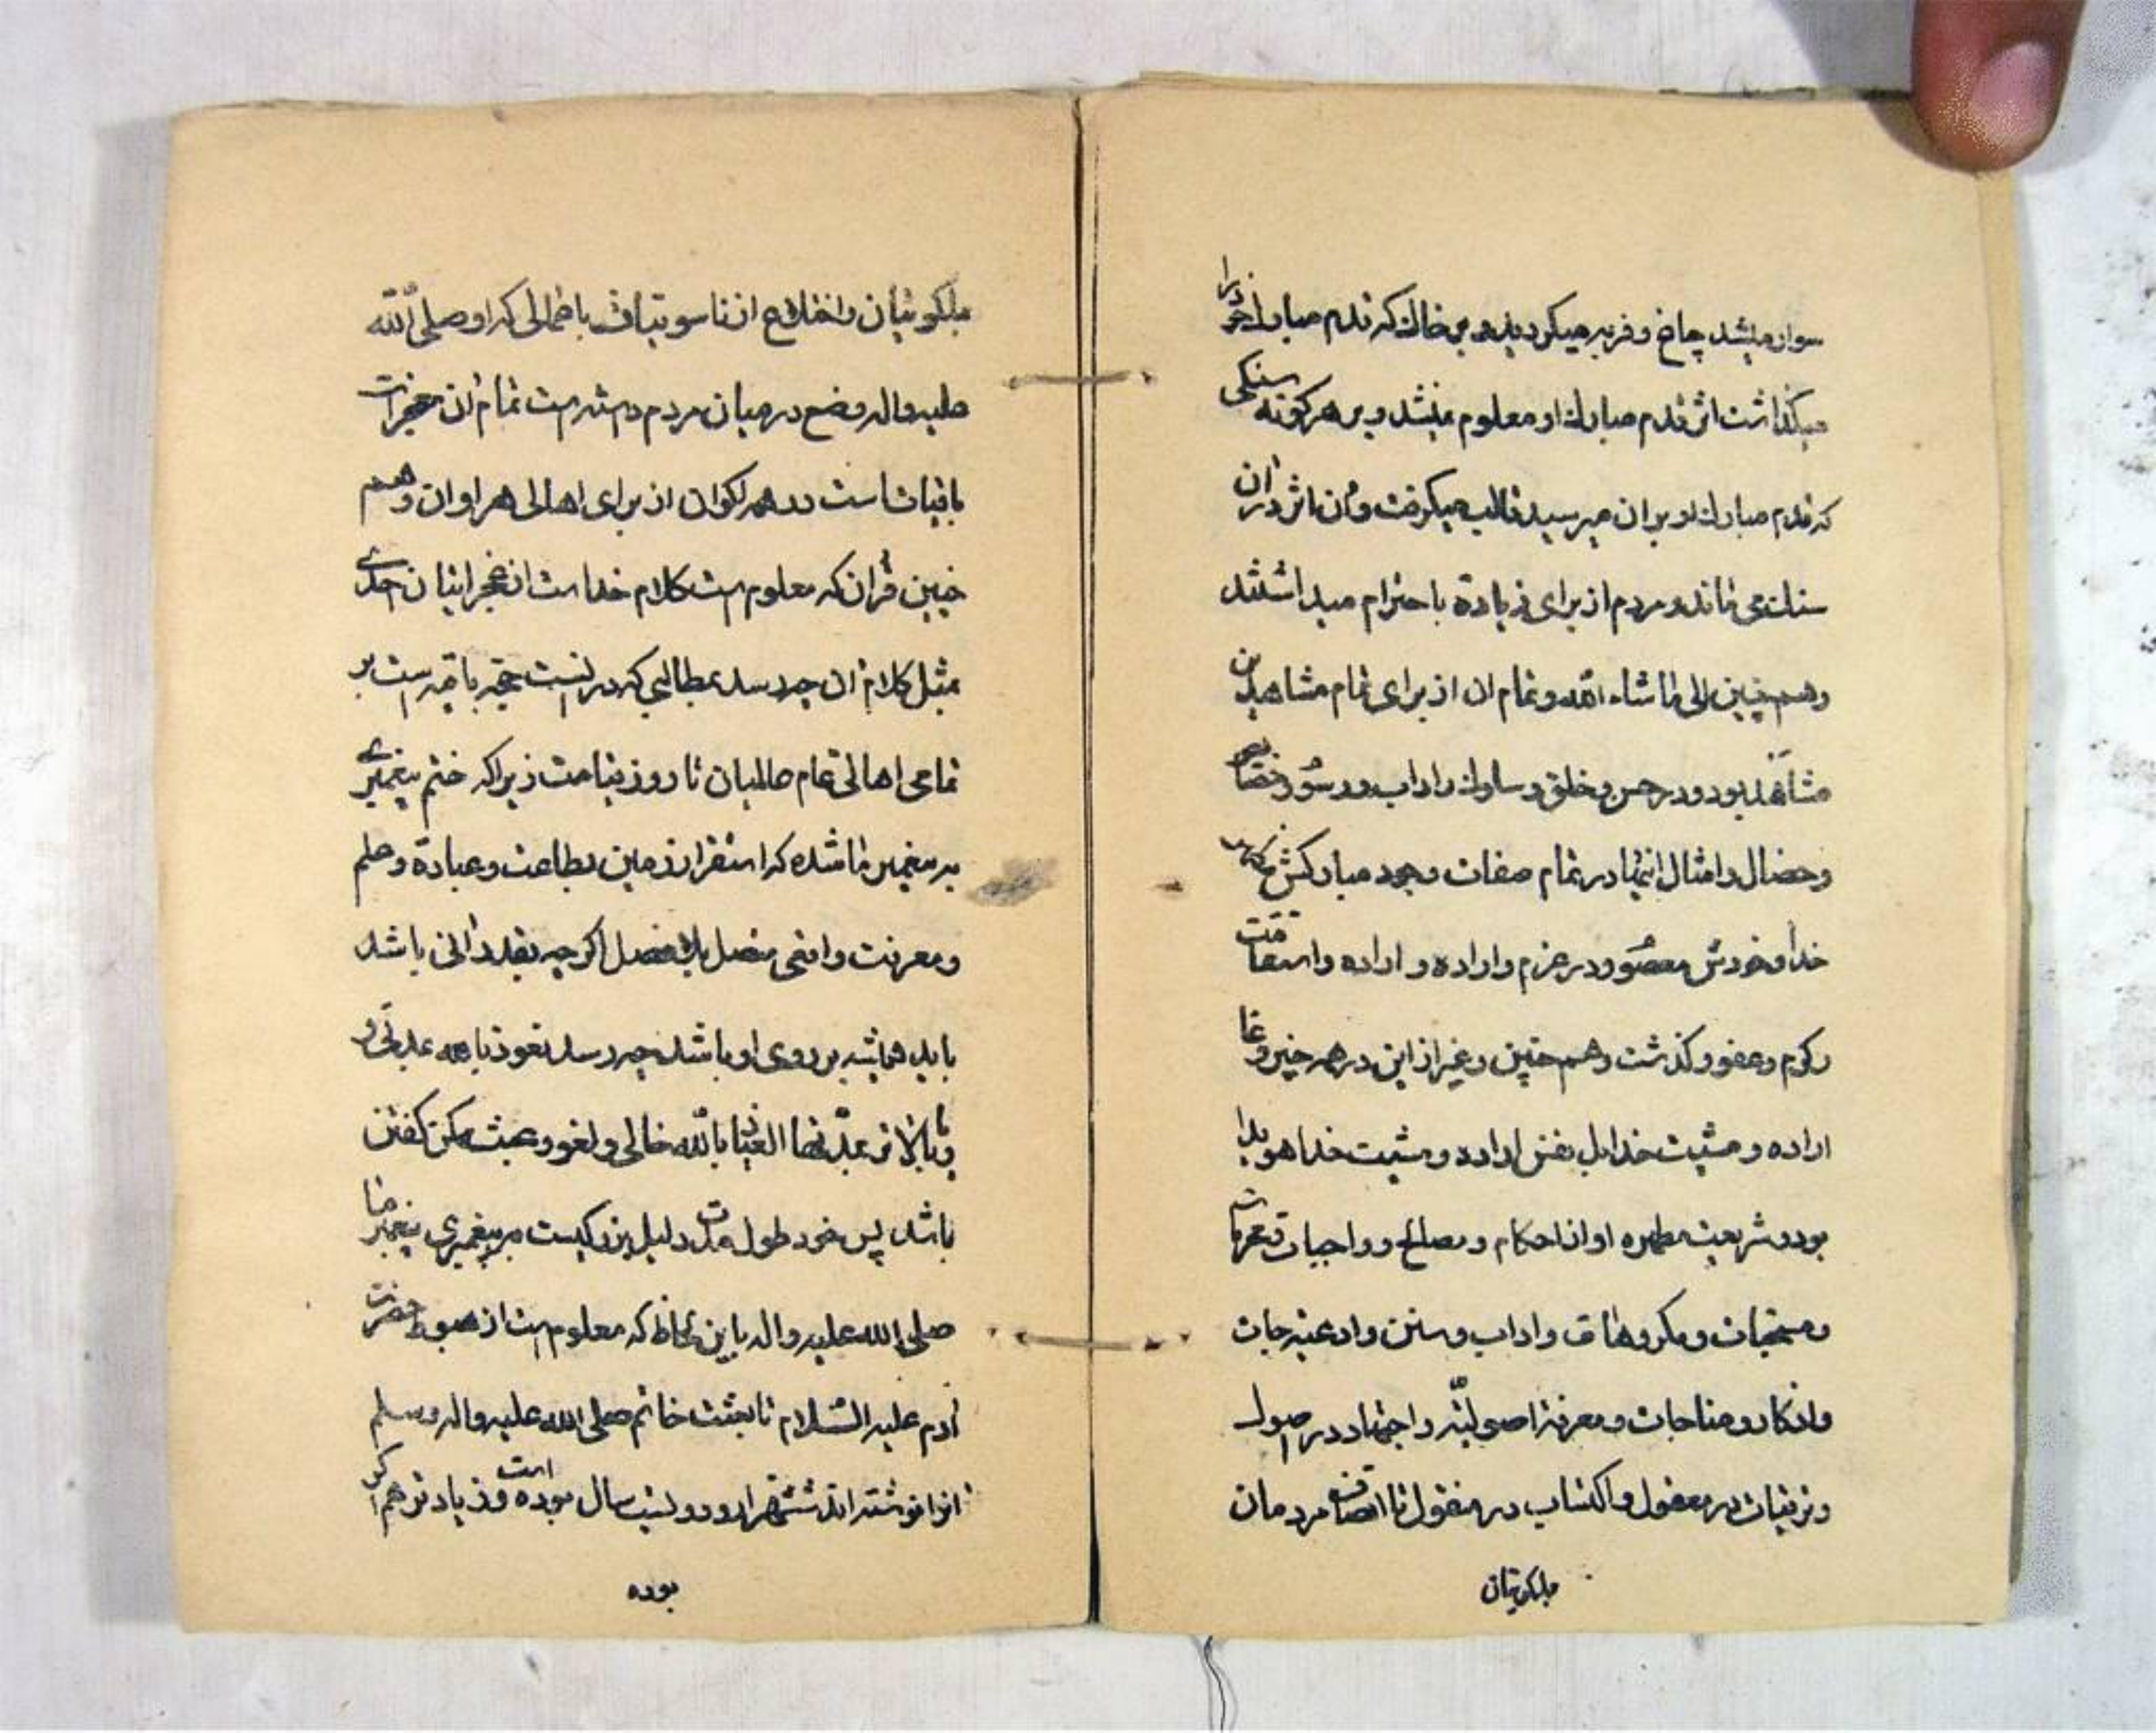 سوار میشد چاخ و فربه میکردید و بر خاك که قدم مبارك خود را
میکذاشت اثر قدم مبارك او معلوم میشد و بر هر کونه سنکی
که قدم مبارك او بر ان میرسید قالب میکرفت و آن اثر در آن
سنك می ماند و مردم از برای زیادة باحترام میداشتند
و هم چنین الی ما شاء الله و تمام ان از برای تمام مشاهدین
مشاهد بود و در حسن و خلق و سلوك و اداب و
و خصال و امثال اینها در تمام صفات وجود مبارکش
خدا و خودش و در عزم و اراده و اراده و استقامت
و کرم و عفو و کذشت و هم چنین و غیر از این در همه چیز
اراده و مشیت خدا بل نفس اراده و مشیت خدا هویدا
بود و شریعت مطهره او از احکام و مصالح و واجبات و محرمات
و مستحبات و مکروهات و اداب و سنن و ادعیه جات
و اذکار و مناجات و معرفة اصولیّه و اجتهاد در اصول
و ترتیبات در معقول و اکتساب در منقول تا مردمان
ملکوتیان
ملکوتیان و از ناسوتیان با کمالی که او صلی الله
علیه و اله وضع در میان مردم داشته است تمام آن معجزات
باقیات است در همه اکوان از برای اهالی هر اوان و هم
چنین قرآن که معلوم است کلام خدا است از عجز اتیان احدی
بمثل کلام آن چه رسد بمطالبی که در اوست حجّة باقیه است بر
تمامی اهالی تمام عالمیان تا روز قیامت زیرا که ختم پیغمبری
به پیغمبر ما شده که استقرار زمین بطاعت و عبادة و علم
و معرفت واقعی متصل بلا فصل اکر چه بقدر دالی باشد
باید همیشه بر روی او باشد چه رسد نعوذ بالله
العیاذ بالله خالی و لغو و عبث کفتن
باشد پس خود طول مدّت دلیل بزرکیست بر پیغمبری پیغمبر ما
صلی الله علیه و اله باین لحاظ که معلوم است از هبوط حضرت
آدم علیه السّلام تا بعثت خاتم صلی الله علیه و اله و سلم
آنرا نوشته اند ششهزار و دویست سال بوده است و زیادتر هم اکر
بوده